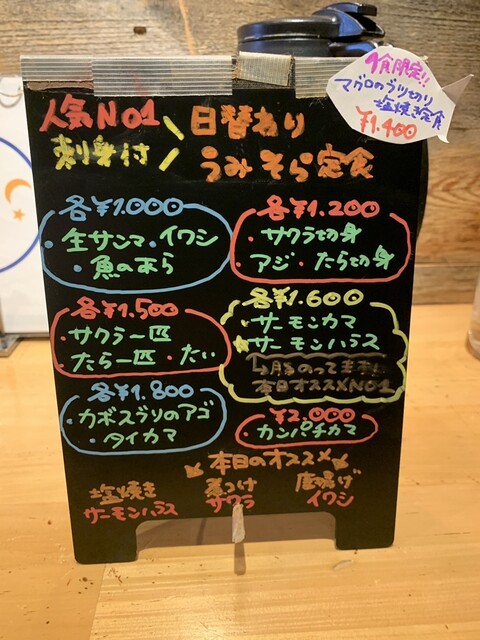 人気NO1
刺身付
日替わり
うみそら定食
1食限定!!
マグロのブツ切り
塩焼き定食
¥1.400
各¥1.000
・生サンマ・イワシ
・魚のあら
各¥1.200
・サクラ切身
・アジ・たら切身
各¥1.500
・サクラ一匹
・たら一匹・たい
各¥1.600
・サーモンカマ
サーモンハラス
脂のってます
本日オススメNO1
各¥1.800
・カボスブリのアゴ
・タイカマ
¥2.000
・カンパチカマ
本日のオススメ
塩焼き
サーモンハラス
煮つけ
サワラ
唐揚げ
イワシ